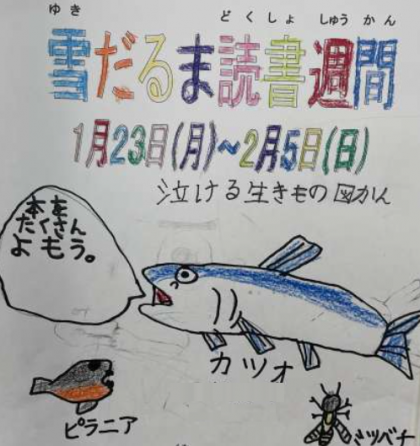 ゆき どくしょ しゅうかん
雪だるま読書週間
1月23日(月)~2月5日(日)
泣ける生きもの図かん
本を
たくさん
よもう。
カツオ
ピラニア
ミツバチ